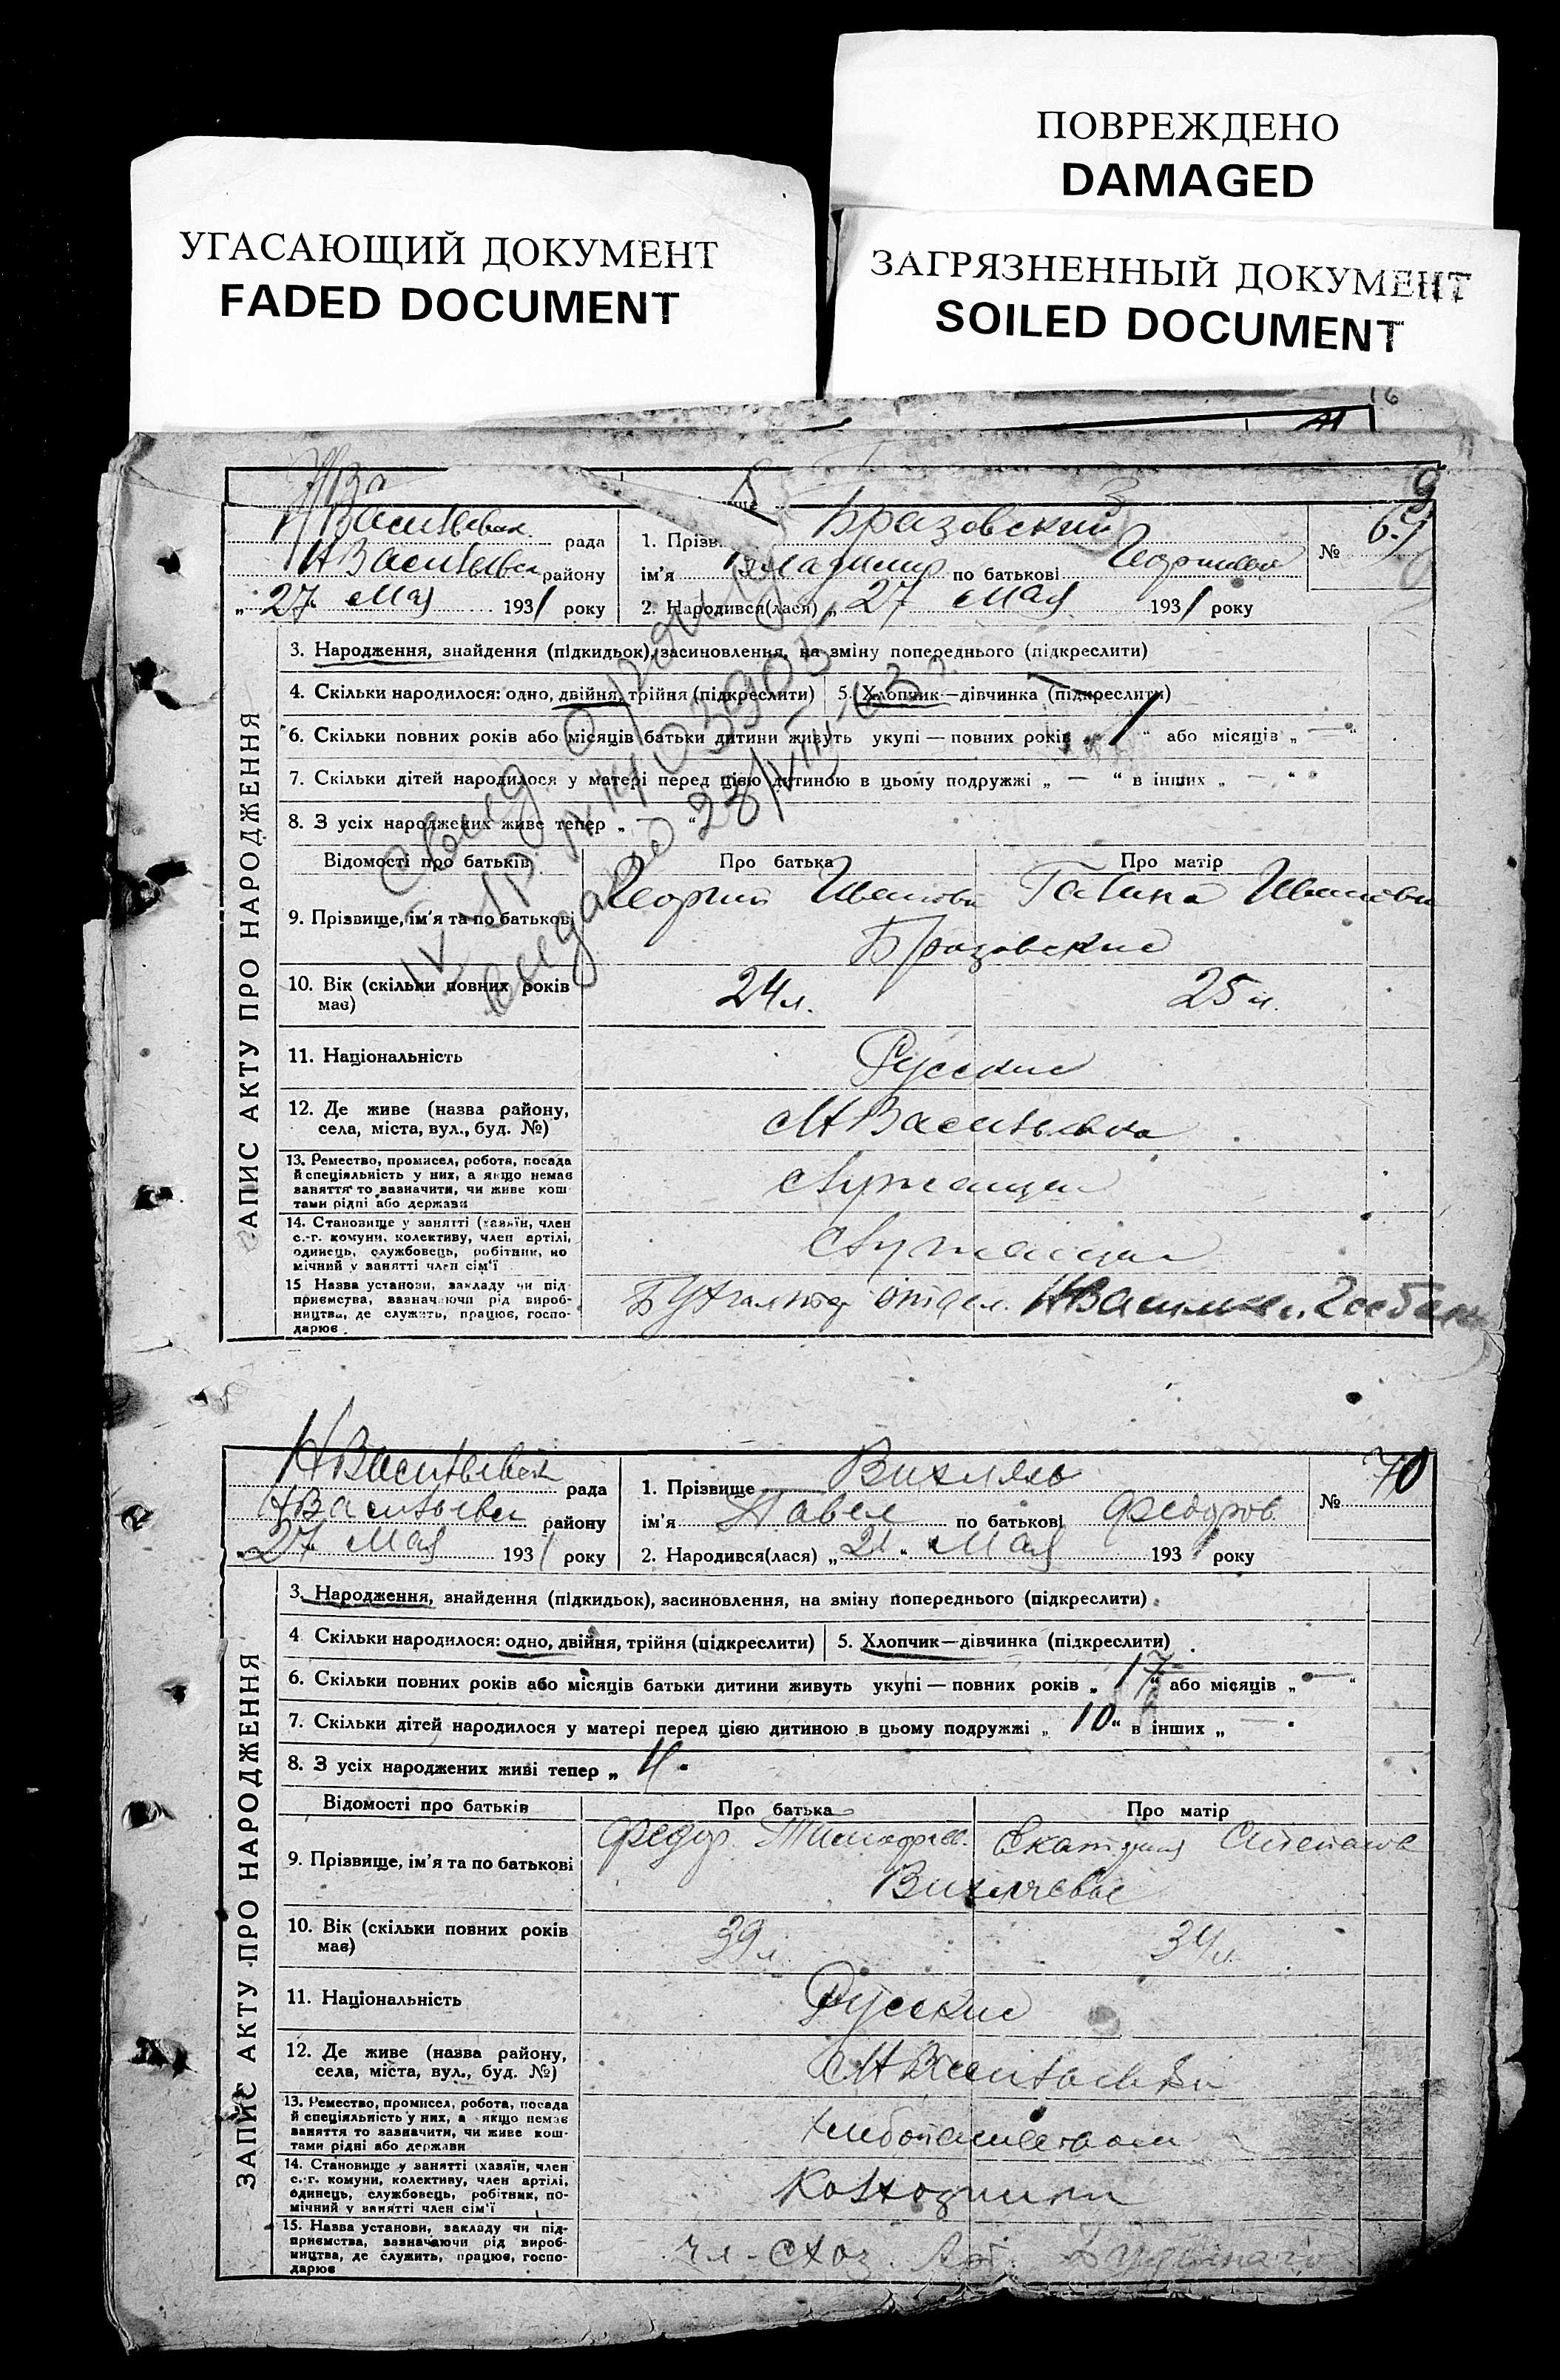 ПОВРЕЖДЕНО
DAMAGED
УГАСАЮЩИЙ ДОКУМЕНТ
FADED DOCUMENT
ЗАГРЯЗНЕННЫЙ ДОКУМЕНТ
SOILED DOCUMENT
16
9
рада
1. Прізв. Бразовский
№ 69
району
ім'я Владимир по батькові
„ 27 Мая 1931 року
2. Народився(лася) „ 27 Мая 1931 року
ЗАПИС АКТУ ПРО НАРОДЖЕННЯ
3. Народження, знайдення (підкидьок), засиновлення, на зміну попереднього (підкреслити)
4. Скільки народилося: одно, двійня, трійня (підкреслити)
5. Хлопчик—дівчинка (підкреслити)
6. Скільки повних років або місяців батьки дитини живуть укупі — повних років „ 1 “ або місяців „ — “
7. Скільки дітей народилося у матері перед цією дитиною в цьому подружжі „ — “ в інших „ — “
8. З усіх народжених живе тепер „ — “
23/VIII 63 г.
Відомості про батьків
Про батька
Про матір
9. Прізвище, ім'я та по батькові
Георгий Иванов
Галина Иванова
Бразовские
10. Вік (скільки повних років має)
24 л.
25 л.
11. Національність
Русские
12. Де живе (назва району, села, міста, вул., буд. №)
Н Васильевка
13. Ремество, промисел, робота, посада й спеціяльність у них, а якщо немає заняття то зазначити, чи живе коштами рідні або держави
Служащие
14. Становище у занятті (хазяїн, член с.-г. комуни, колективу, член артілі, одинець, службовець, робітник, помічний у занятті член сім'ї
Служащие
15 Назва установи, закладу чи підприємства, зазначаючи рід виробництва, де служить, працює, господарює
Бухгалтер отдел.
Н Васильевка
рада
1. Прізвище Вихляев
№ 70
Н Васильевка
району
ім'я Павел по батькові Федоров.
27 Мая 1931 року
2. Народився(лася) „ 21 “ Мая 1931 року
ЗАПИС АКТУ ПРО НАРОДЖЕННЯ
3. Народження, знайдення (підкидьок), засиновлення, на зміну попереднього (підкреслити)
4 Скільки народилося: одно, двійня, трійня (підкреслити)
5. Хлопчик—дівчинка (підкреслити)
6. Скільки повних років або місяців батьки дитини живуть укупі — повних років „ 17 “ або місяців „ — “
7. Скільки дітей народилося у матері перед цією дитиною в цьому подружжі „ 10 “ в інших „ —
8. З усіх народжених живі тепер „ 4
Відомості про батьків
Про батька
Про матір
9. Прізвище, ім'я та по батькові
Федор Тимофеев.
Екатерина Степанов
Вихляевы
10. Вік (скільки повних років має)
39 л
34 л.
11. Національність
Русские
12. Де живе (назва району, села, міста, вул., буд. №)
Н Васильевка
13. Ремество, промисел, робота, посада й спеціяльність у них, а якщо немає заняття то зазначити, чи живе коштами рідні або держави
Хлебопашеством
14. Становище у занятті (хазяїн, член с.-г. комуни, колективу, член артілі, одинець, службовець, робітник, помічний у занятті член сім'ї
Колхозники
15. Назва установи, закладу чи підприємства, зазначаючи рід виробництва, де служить, працює, господарює
чл. СХоз. Арт. Буденного